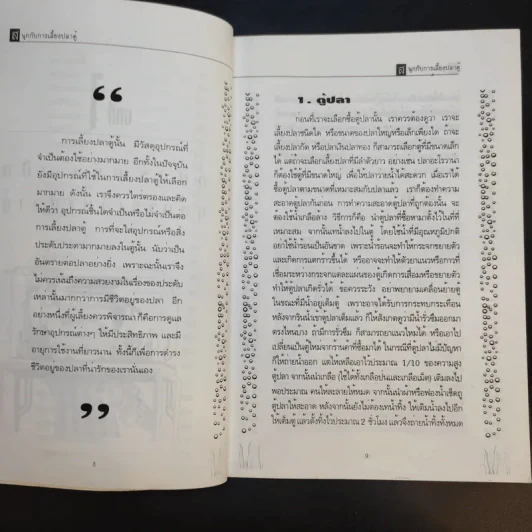 สนุกกับการเลี้ยงปลาตู้
“
การเลี้ยงปลาตู้นั้น มีวัสดุอุปกรณ์ที่
จำเป็นต้องใช้อย่างมากมาย อีกทั้งในปัจจุบัน
ยังมีอุปกรณ์ที่ใช้ในการเลี้ยงปลาตู้ให้เลือก
มากมาย ดังนั้น เราจึงควรไตรตรองและคิด
ให้ดีว่า อุปกรณ์ชิ้นใดจำเป็นหรือไม่จำเป็นต่อ
การเลี้ยงปลาตู้ การที่จะใส่อุปกรณ์หรือสิ่ง
ประดับประดามากมายลงในตู้นั้น นับว่าเป็น
อันตรายต่อปลาอย่างยิ่ง เพราะฉะนั้นเราจึง
ไม่ควรเน้นถึงความสวยงามในเรื่องของประดับ
เหล่านั้นมากกว่าการมีชีวิตอยู่ของปลา อีก
อย่างหนึ่งที่ผู้เลี้ยงควรพิจารณา ก็คือการดูแล
รักษาอุปกรณ์ต่างๆ ให้มีประสิทธิภาพ และมี
อายุการใช้งานที่ยาวนาน ทั้งนี้ก็เพื่อการดำรง
ชีวิตอยู่ของปลาที่น่ารักของเรานั่นเอง
”
8
สนุกกับการเลี้ยงปลาตู้
1. ตู้ปลา
ก่อนที่เราจะเลือกซื้อตู้ปลานั้น เราควรต้องดูว่า เราจะ
เลี้ยงปลาชนิดใด หรือขนาดของปลาใหญ่หรือเล็กเพียงใด ถ้าจะ
เลี้ยงปลากัด หรือปลาเงินปลาทอง ก็สามารถเลือกตู้ที่มีขนาดเล็ก
ได้ แต่ถ้าจะเลือกเลี้ยงปลาที่มีลำตัวยาว อย่างเช่น ปลาอะโรวาน่า
ก็ต้องใช้ตู้ที่มีขนาดใหญ่ เพื่อให้ปลาว่ายน้ำได้สะดวก เมื่อเราได้
ซื้อตู้ปลาตามขนาดที่เหมาะสมกับปลาแล้ว เราก็ต้องทำความ
สะอาดตู้ปลากันก่อน การทำความสะอาดตู้ปลาที่ถูกต้องนั้น จะ
ต้องใช้น้ำเกลือล้าง วิธีการก็คือ นำตู้ปลาที่ซื้อมาตั้งไว้ในที่ที่
เหมาะสม จากนั้นเทน้ำลงไปในตู้ โดยใช้น้ำที่มีอุณหภูมิปกติ
อย่าใช้น้ำร้อนเป็นอันขาด เพราะน้ำร้อนจะทำให้กระจกขยายตัว
และเกิดการแตกร้าวขึ้นได้ หรืออาจจะทำให้ตัวยาแนวหรือกาวที่
เชื่อมระหว่างกระจกแต่ละแผ่นของตู้เกิดการเสื่อมหรือขยายตัว
ทำให้ตู้ปลาเกิดรั่วได้ ข้อควรระวัง อย่าพยายามเคลื่อนย้ายตู้
ในขณะที่มีน้ำอยู่เต็มตู้ เพราะอาจได้รับการกระทบกระเทือน
หลังจากรินน้ำเข้าตู้ปลาเต็มแล้ว ก็ให้สังเกตดูว่ามีน้ำรั่วซึมออกมา
ตรงไหนบ้าง ถ้ามีการรั่วซึม ก็สามารถยาแนวใหม่ได้ หรือเอาไป
เปลี่ยนเป็นตู้ใหม่จากร้านค้าที่ซื้อมาได้ ในกรณีที่ตู้ปลาไม่มีปัญหา
ก็ให้ถ่ายน้ำออก แต่ให้เหลือเอาไว้ประมาณ 1/10 ของความสูง
ตู้ปลา จากนั้นนำเกลือ (ใช้ได้ทั้งเกลือป่นและเกลือเม็ด) เติมลงไป
พอประมาณ คนให้ละลายให้หมด จากนั้นนำผ้าหรือฟองน้ำเช็ดถู
ตู้ปลาให้สะอาด หลังจากนั้นยังไม่ต้องเทน้ำทิ้ง ให้เติมน้ำลงไปอีก
ให้เต็มตู้ แล้วตั้งทิ้งไว้ประมาณ 2 ชั่วโมง แล้วจึงถ่ายน้ำทิ้งทั้งหมด
9